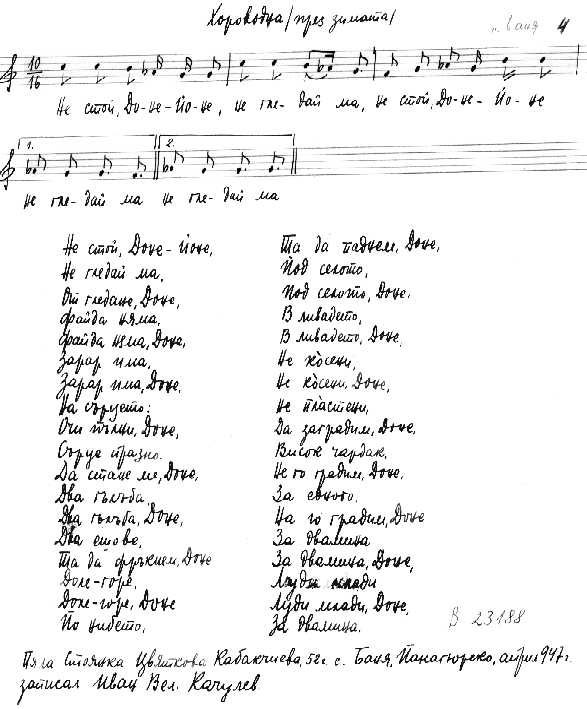 Хороводна /през зимата/
с. Баня 4
10
16
Не стой, До-не-Йо-не, не гле-дай ма, не стой, До-не-Йо-не
1. 2.
не гле-дай ма не гле-дай ма
Не стой, Доне-Йоне,
Не гледай ма,
От гледане, Доне,
файда няма,
файда няма, Доне,
Зарар има,
Зарар има, Доне,
На сърцето:
Очи пълни, Доне,
Сърце празно.
Да стане ме, Доне,
Два гълъба
Два гълъба, Доне,
Два
Та да фръкнем, Доне
Доле-горе,
Доле-горе, Доне
По нибето,
Та да паднем, Доне,
Под селото,
Под селото, Доне,
В ливадето,
В ливадето, Доне,
Не ко̀сени,
Не ко̀сени, Доне,
Не пла̀стени,
Да заградим, Доне,
Висок чардак,
Не го градим, Доне,
За едного,
На го градим, Доне
За двамина
За двамина, Доне,
Луди млади
Луди млади, Доне,
За двамина.
В 23188
Пяла Стоянка Цвяткова Кабакчиева, 52 г. с. Баня, Панагюрско, април 947 г.
записал Иван Вел. Качулев